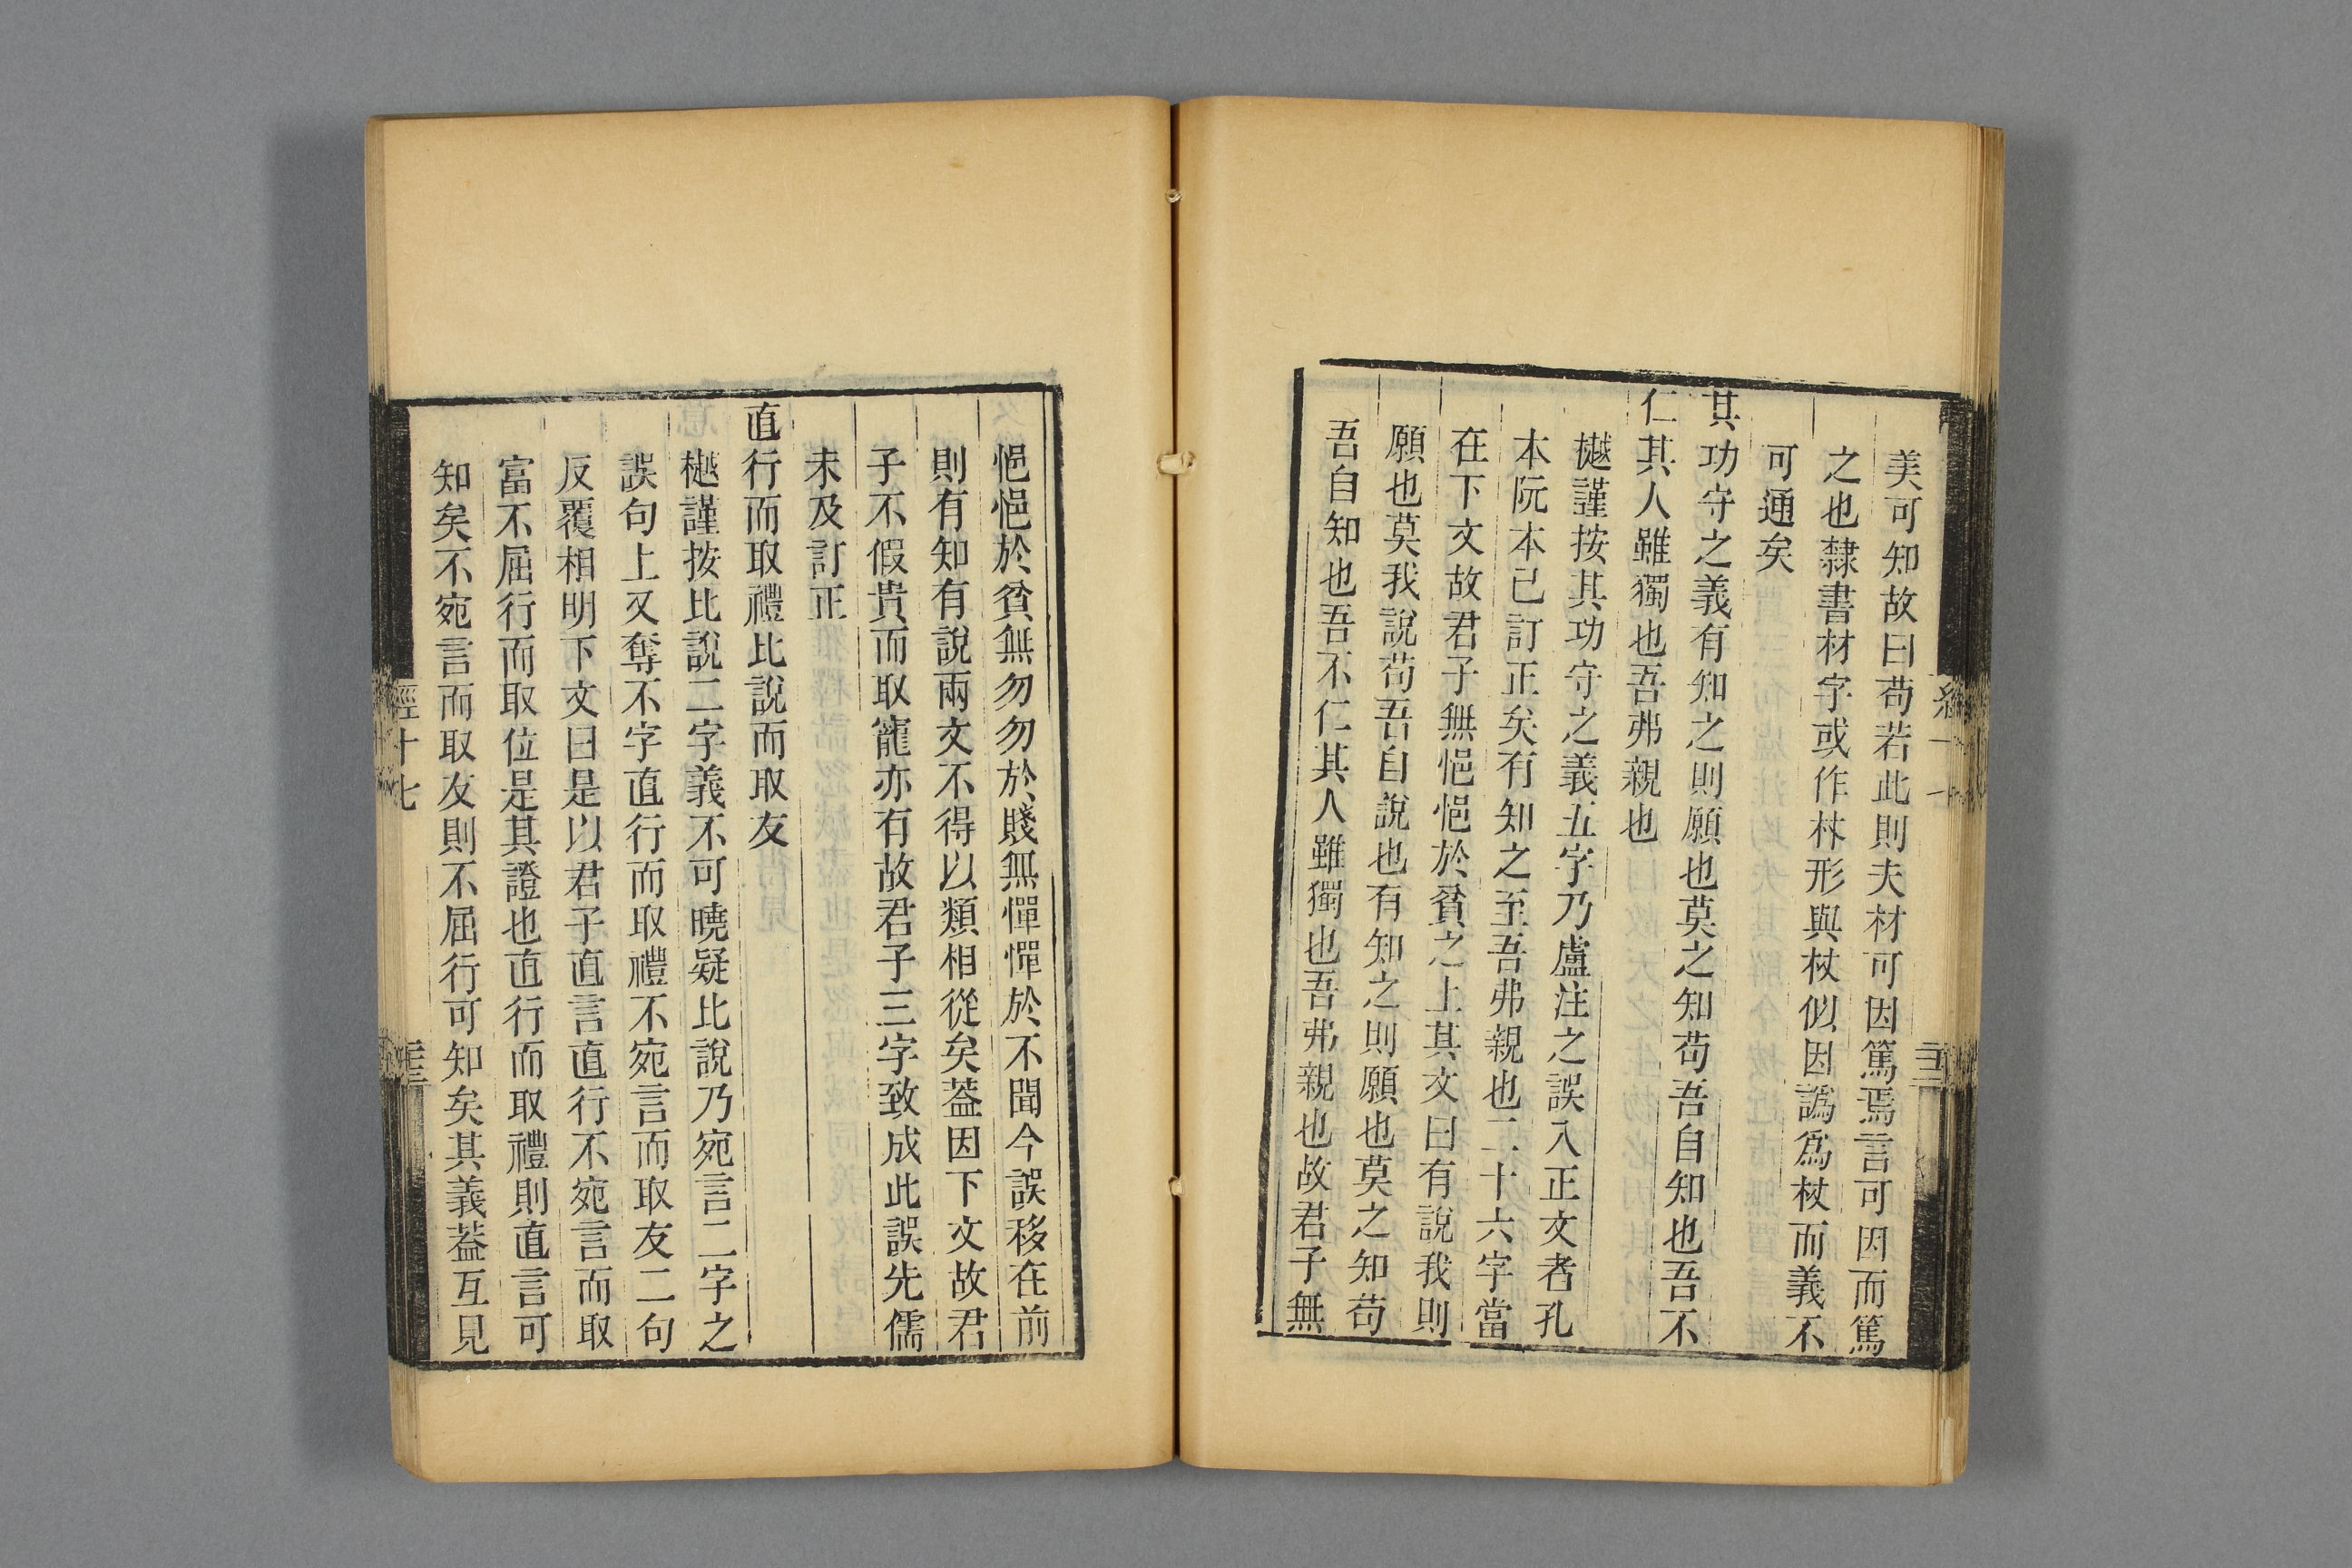 美可知故曰苟若此則夫材可因篤焉言可因而篤
之也隸書材字或作林形與杖似因譌爲杖而義不
可通矣
其功守之義有知之則願也莫之知苟吾自知也吾不
仁其人雖獨也吾弗親也
樾謹按其功守之義五字乃盧注之誤入正文者孔
本阮本已訂正矣有知之至吾弗親也二十六字當
在下文故君子無悒悒於貧之上其文曰有說我則
願也莫我說苟吾自說也有知之則願也莫之知苟
吾自知也吾不仁其人雖獨也吾弗親也故君子無
悒悒於貧無勿勿於賤無憚憚於不聞今誤移在前
則有知有說兩文不得以類相從矣葢因下文故君
子不假貴而取寵亦有故君子三字致成此誤先儒
未及訂正
直行而取禮比說而取友
樾謹按比說二字義不可曉疑比說乃宛言二字之
誤句上又奪不字直行而取禮不宛言而取友二句
反覆相明下文曰是以君子直言直行不宛言而取
富不屈行而取位是其證也直行而取禮則直言可
知矣不宛言而取友則不屈行可知矣其義葢互見
經十七